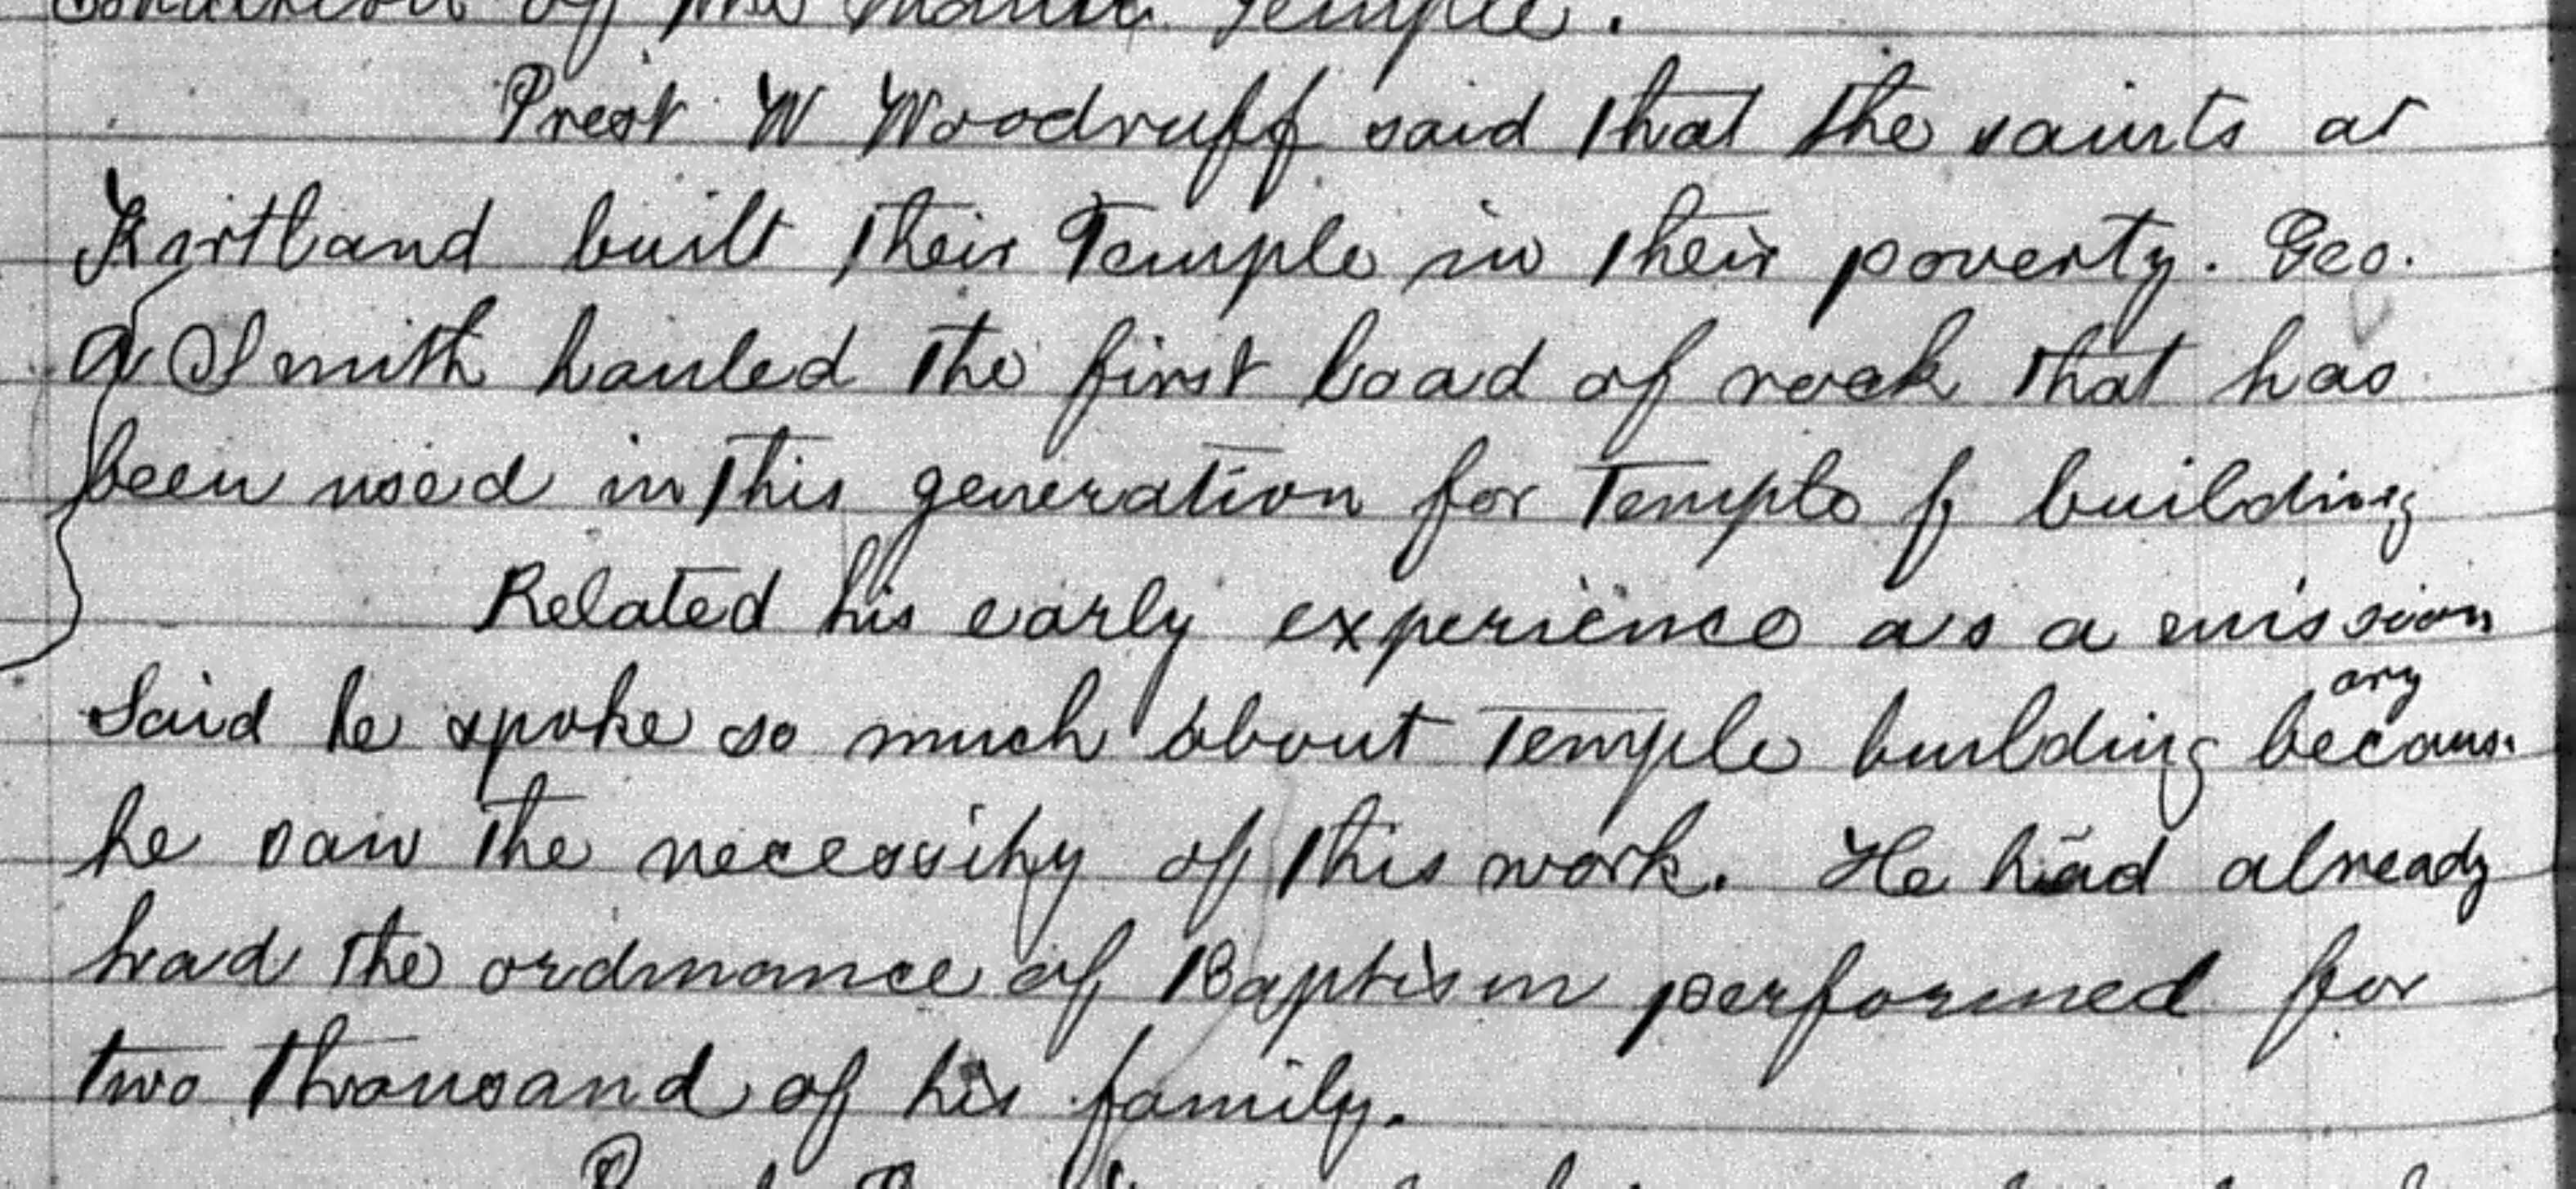 of the Manti Temple.
Prest W Woodruff said that the saints at
Kirtland built their Temple in their poverty. Geo.
A Smith hauled the first load of rock that has
been used in this generation for Temple building
Related his early experience as a mission
ary
Said he spoke so much about Temple building becaus.
he saw the necessity of this work. He had already
had the ordinance of Baptism performed for
two thousand of his family.